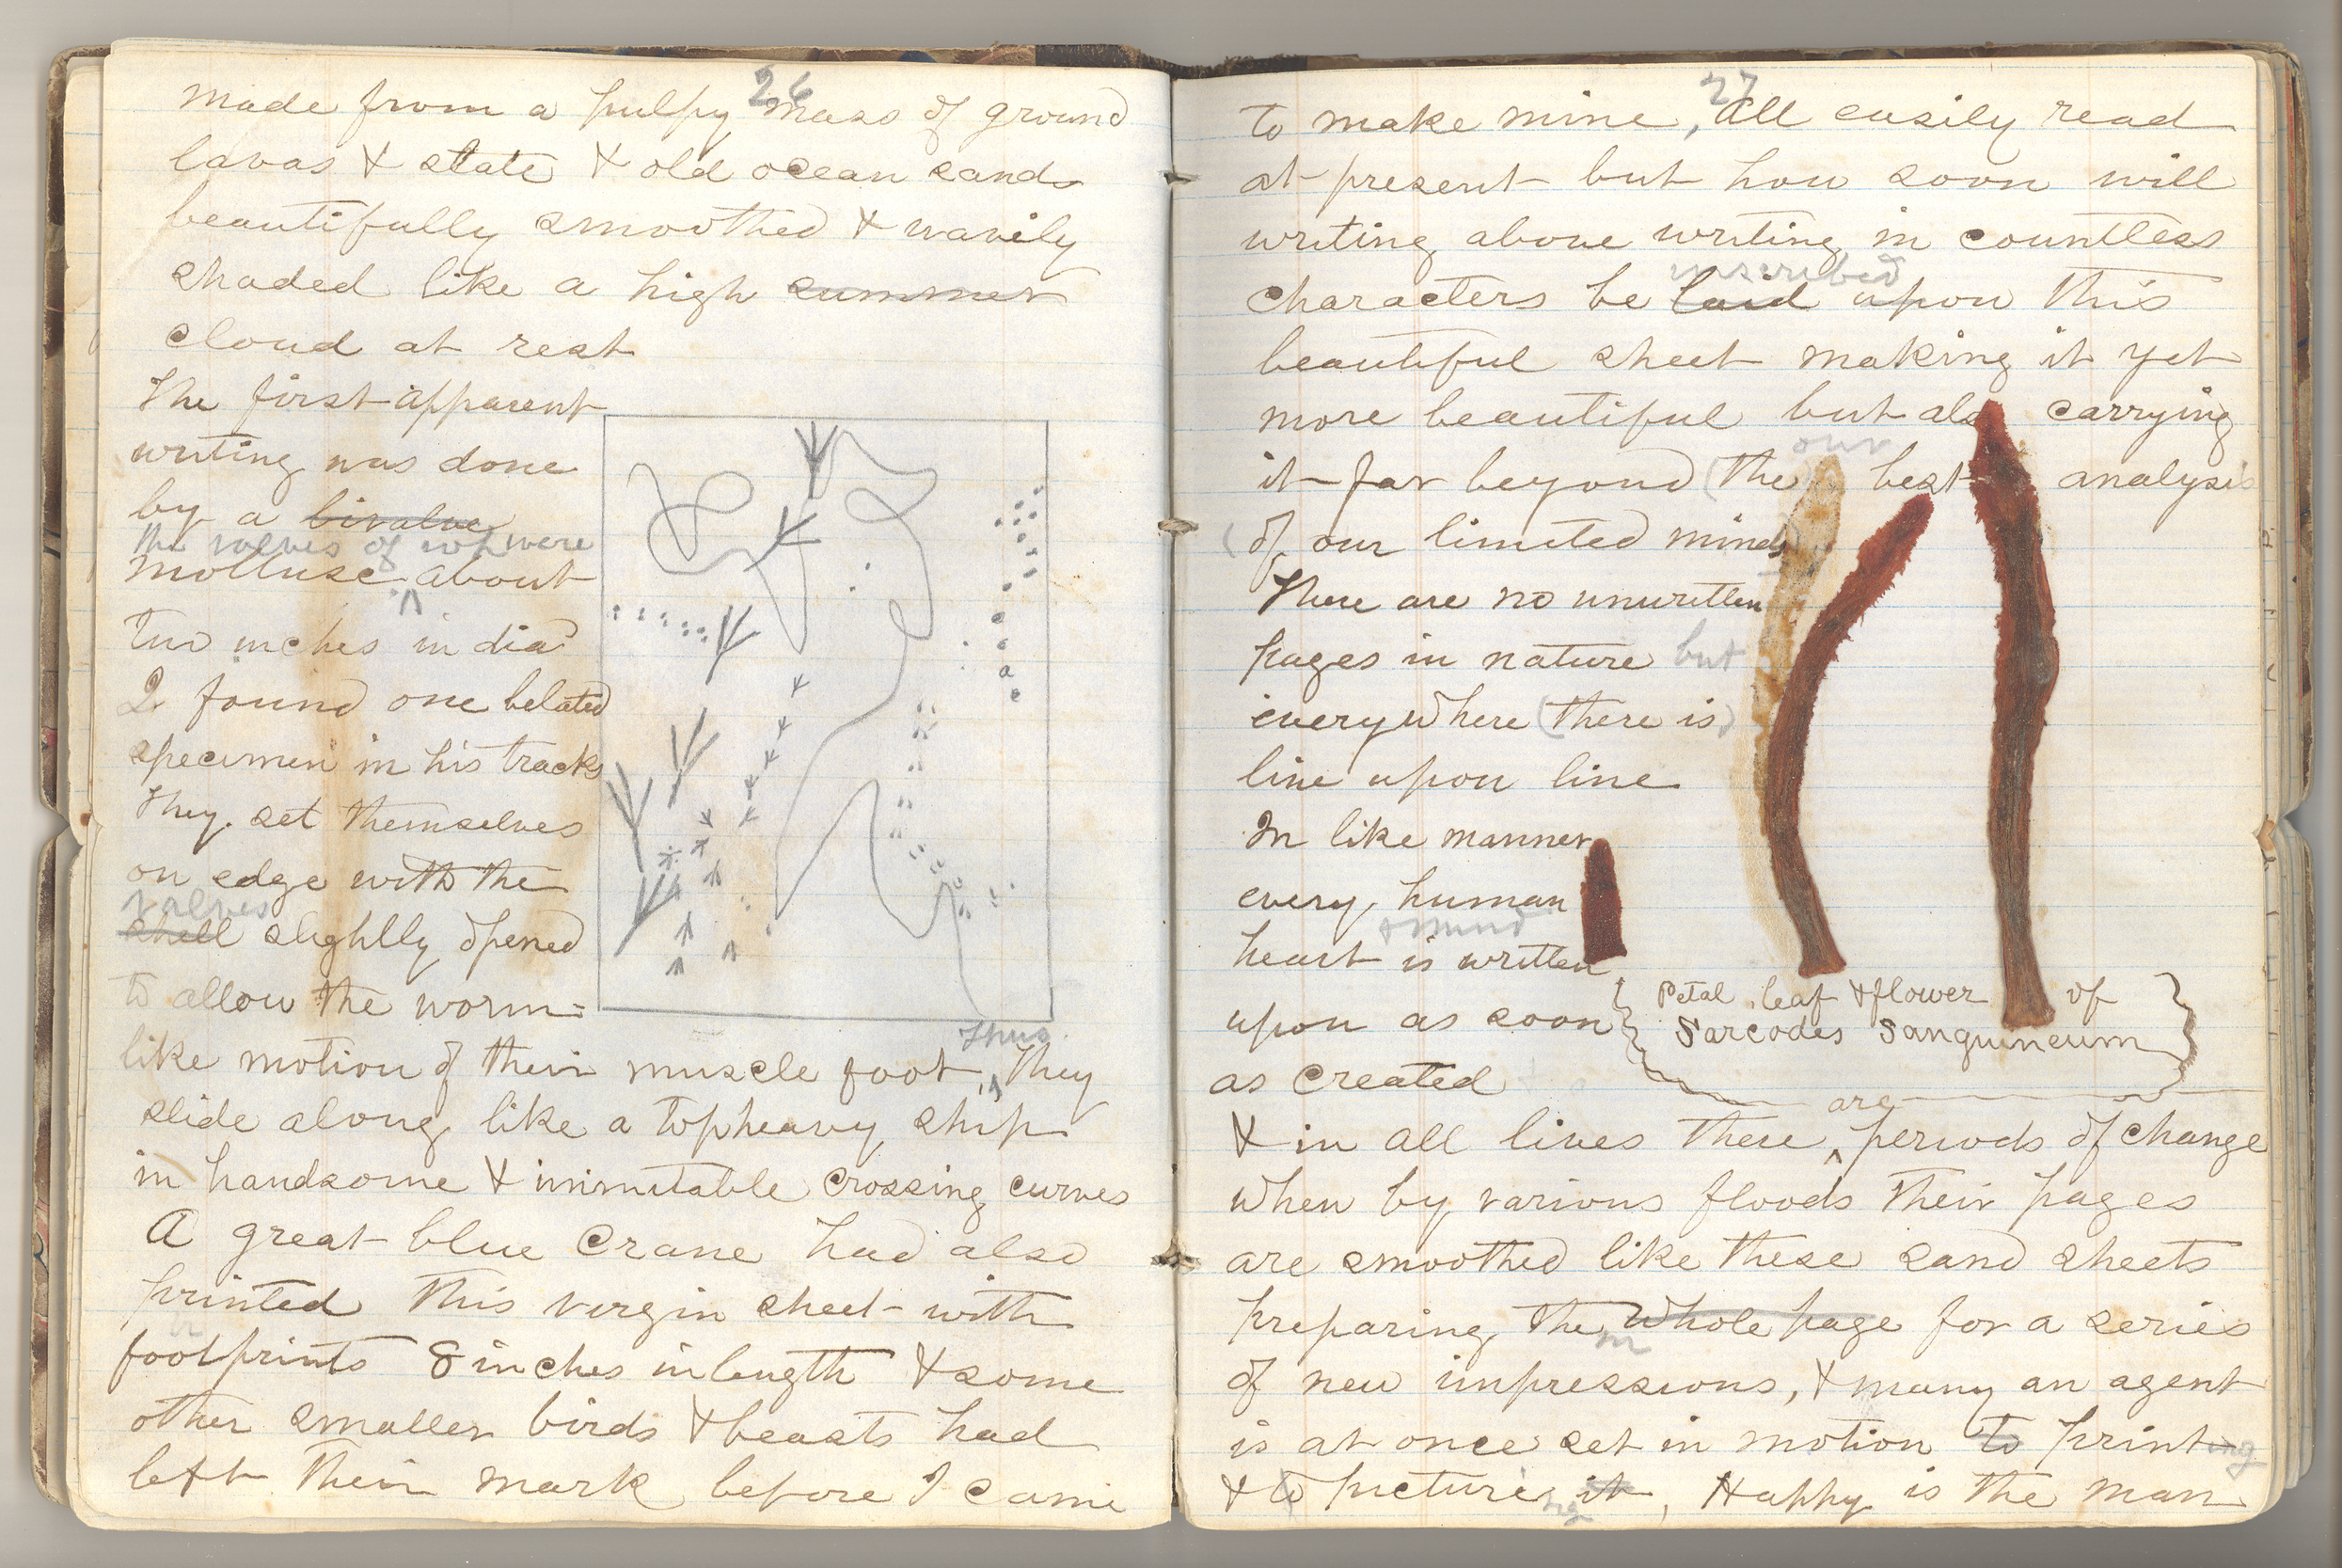 26
made from a pulpy mass of ground
lavas & slate & old ocean sands
beautifully smoothed & wavily
shaded like a high summer
cloud at rest
The first apparent
writing was done
by a bivalve
the valves of wh were
mollusc about
two inches in dia
I found one belated
specimen in his tracks
They set themselves
on edge with the
valves
shell slighlly opened
to allow the worm=
Thus
like motion of their muscle foot, They
slide along like a topheavy ship
in handsome & inimitable crossing curves
A great blue Crane had also
printed this virgin sheet with
footprints 8 inches in length & some
other smaller birds & beasts had
left their mark before I came
27
to make mine, All easily read
at present but how soon will
writing above writing in countless
inscribed
characters be laid upon this
beautiful sheet making it yet
more beautiful but also carrying
our
it far beyond (the best analysis
(of our limited minds)
There are no unwritten
pages in nature but
everywhere (there is)
line upon line
In like manner
every human
& mind
heart is written
upon as soon
as created
Petal, leaf & flower of
Sarcodes Sanguineum
are
& in all lives there periods of change
when by various floods their pages
are smoothed like these sand sheets
preparing the whole page for a series
m
of new impressions, & many an agent
is at once set in motion to printing
& to picture it, Happy is the man
ing